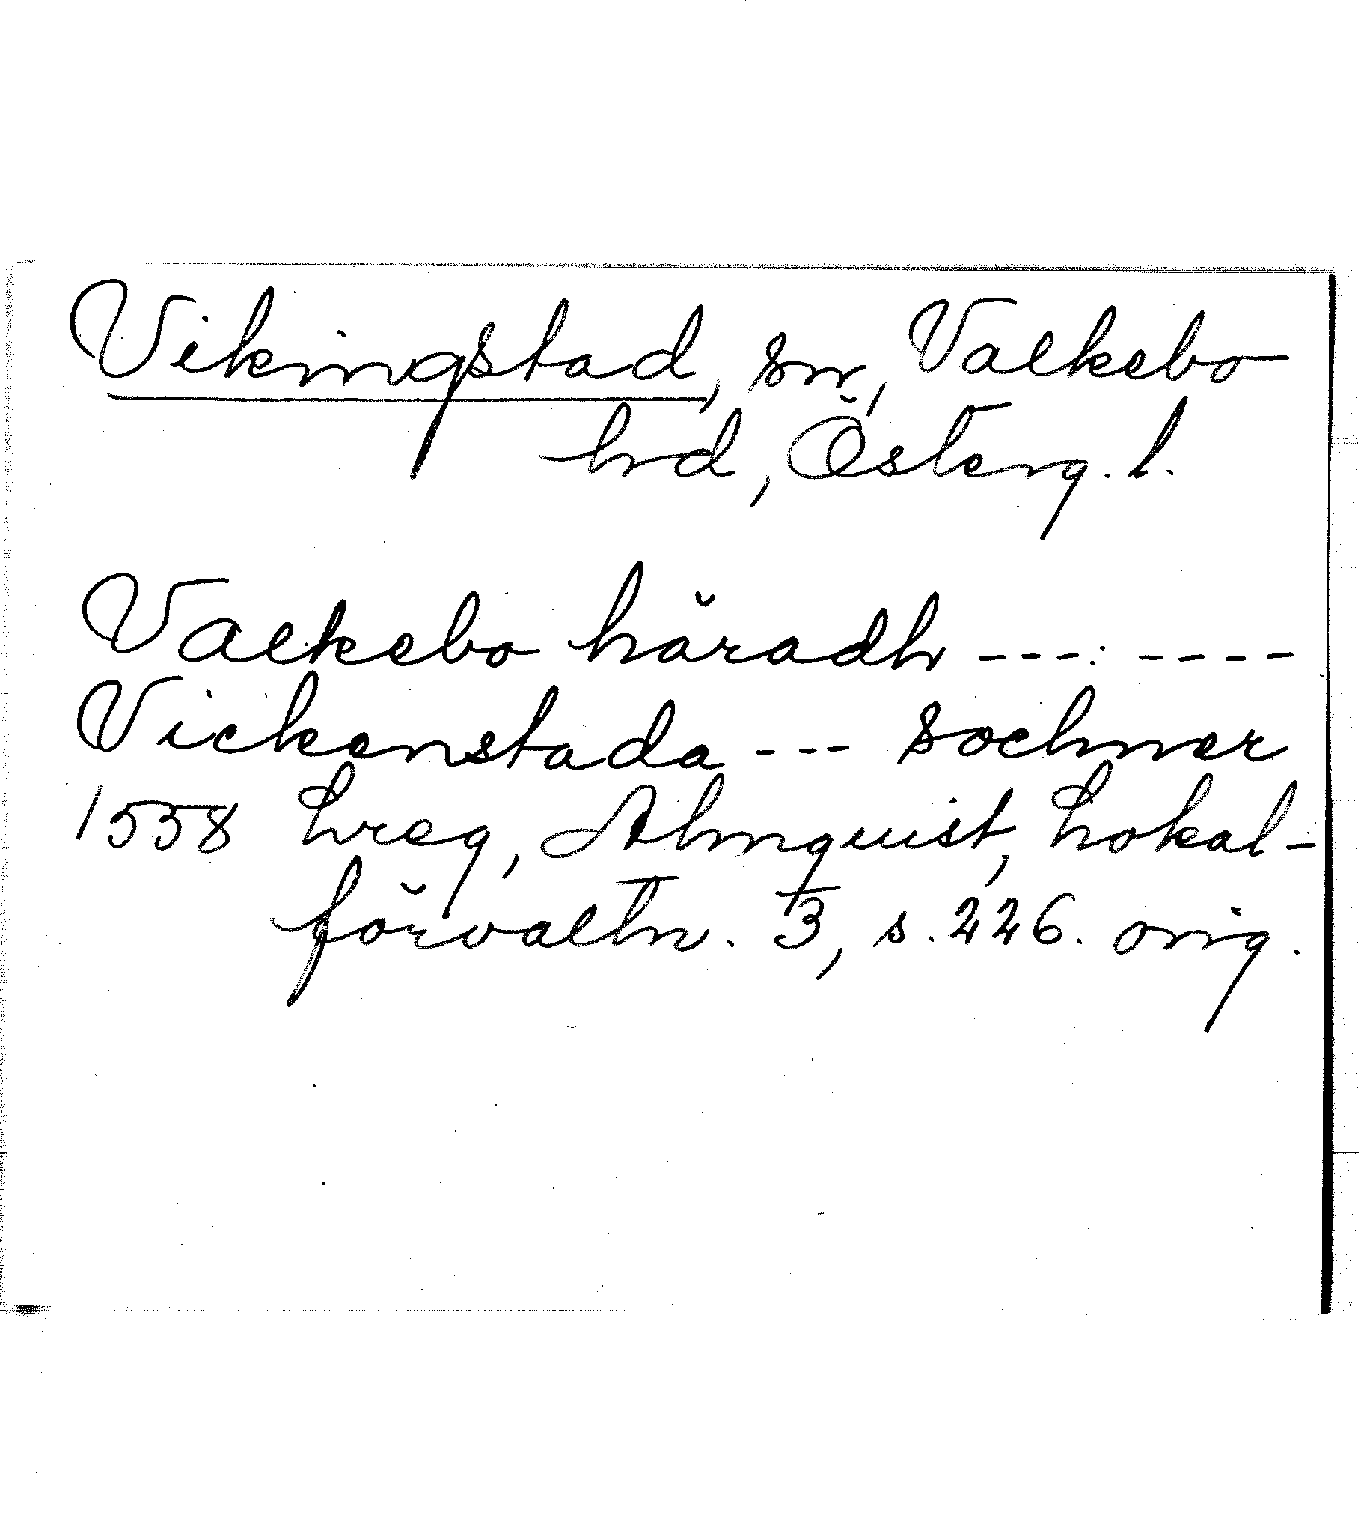 Vikingstad, sn, Valkebo
hd, Österg. l.
Valkebo häradh ---: ----
Vickenstada --- sochner
1558 hreg, Almquist, Lokal-
förvaltn. 3, s. 226. orig.